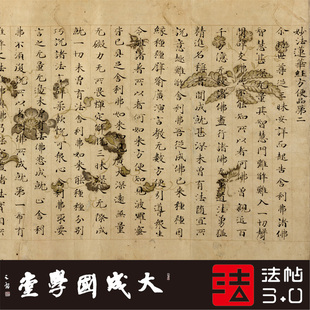 妙法蓮華經方便品第二
爾時世尊從三昧安詳而起告舍利弗諸佛
智慧甚深無量其智慧門難解難入一切聲
聞辟支佛所不能知所以者何佛曾親近百
千萬億無數諸佛盡行諸佛無量道法勇猛
精進名稱普聞成就甚深未曾有法隨宜所
說意趣難解舍利弗吾從成佛已來種種因
緣種種譬喻廣演言教無數方便引導眾生
令離諸著所以者何如來方便知見波羅蜜
皆已具足舍利弗如來知見廣大深遠無量
無礙力無所畏禪定解脫三昧深入無際成
就一切未曾有法舍利弗如來能種種分別
巧說諸法言辭柔軟悅可眾心舍利弗取要
言之無量無邊未曾有法佛悉成就止舍利
弗不須復說所以者何佛所成就第一希有
大成國學堂
法
法帖
3.0